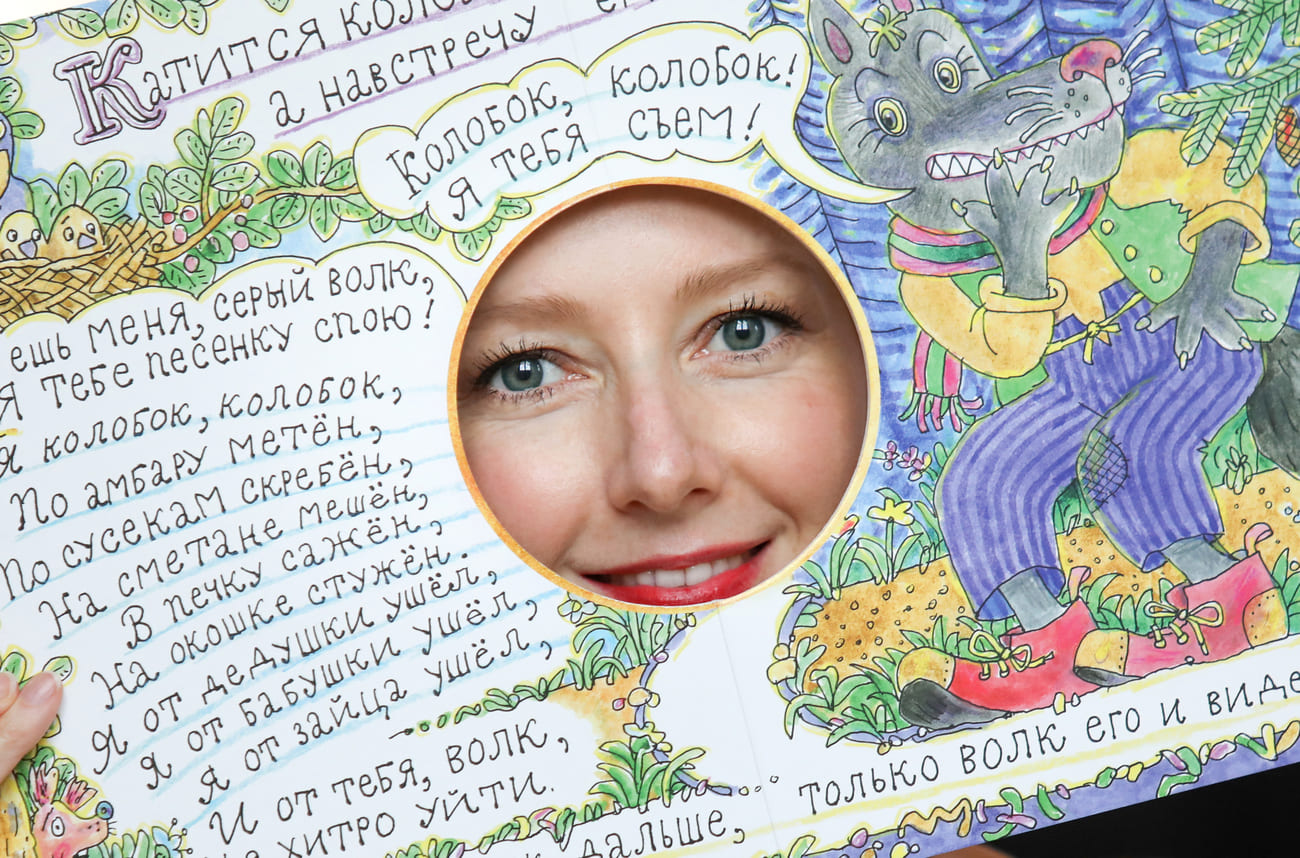 Катится
а навстречу
Колобок, колобок!
Я тебя съем!
ешь меня, серый волк,
Я тебе песенку спою!
Я колобок, колобок,
По амбару метён,
По сусекам скребён,
На сметане мешён,
В печку сажён,
На окошке стужён.
Я от дедушки ушёл,
Я от бабушки ушёл,
Я от зайца ушёл,
И от тебя, волк,
хитро уйти.
дальше,
только волк его и